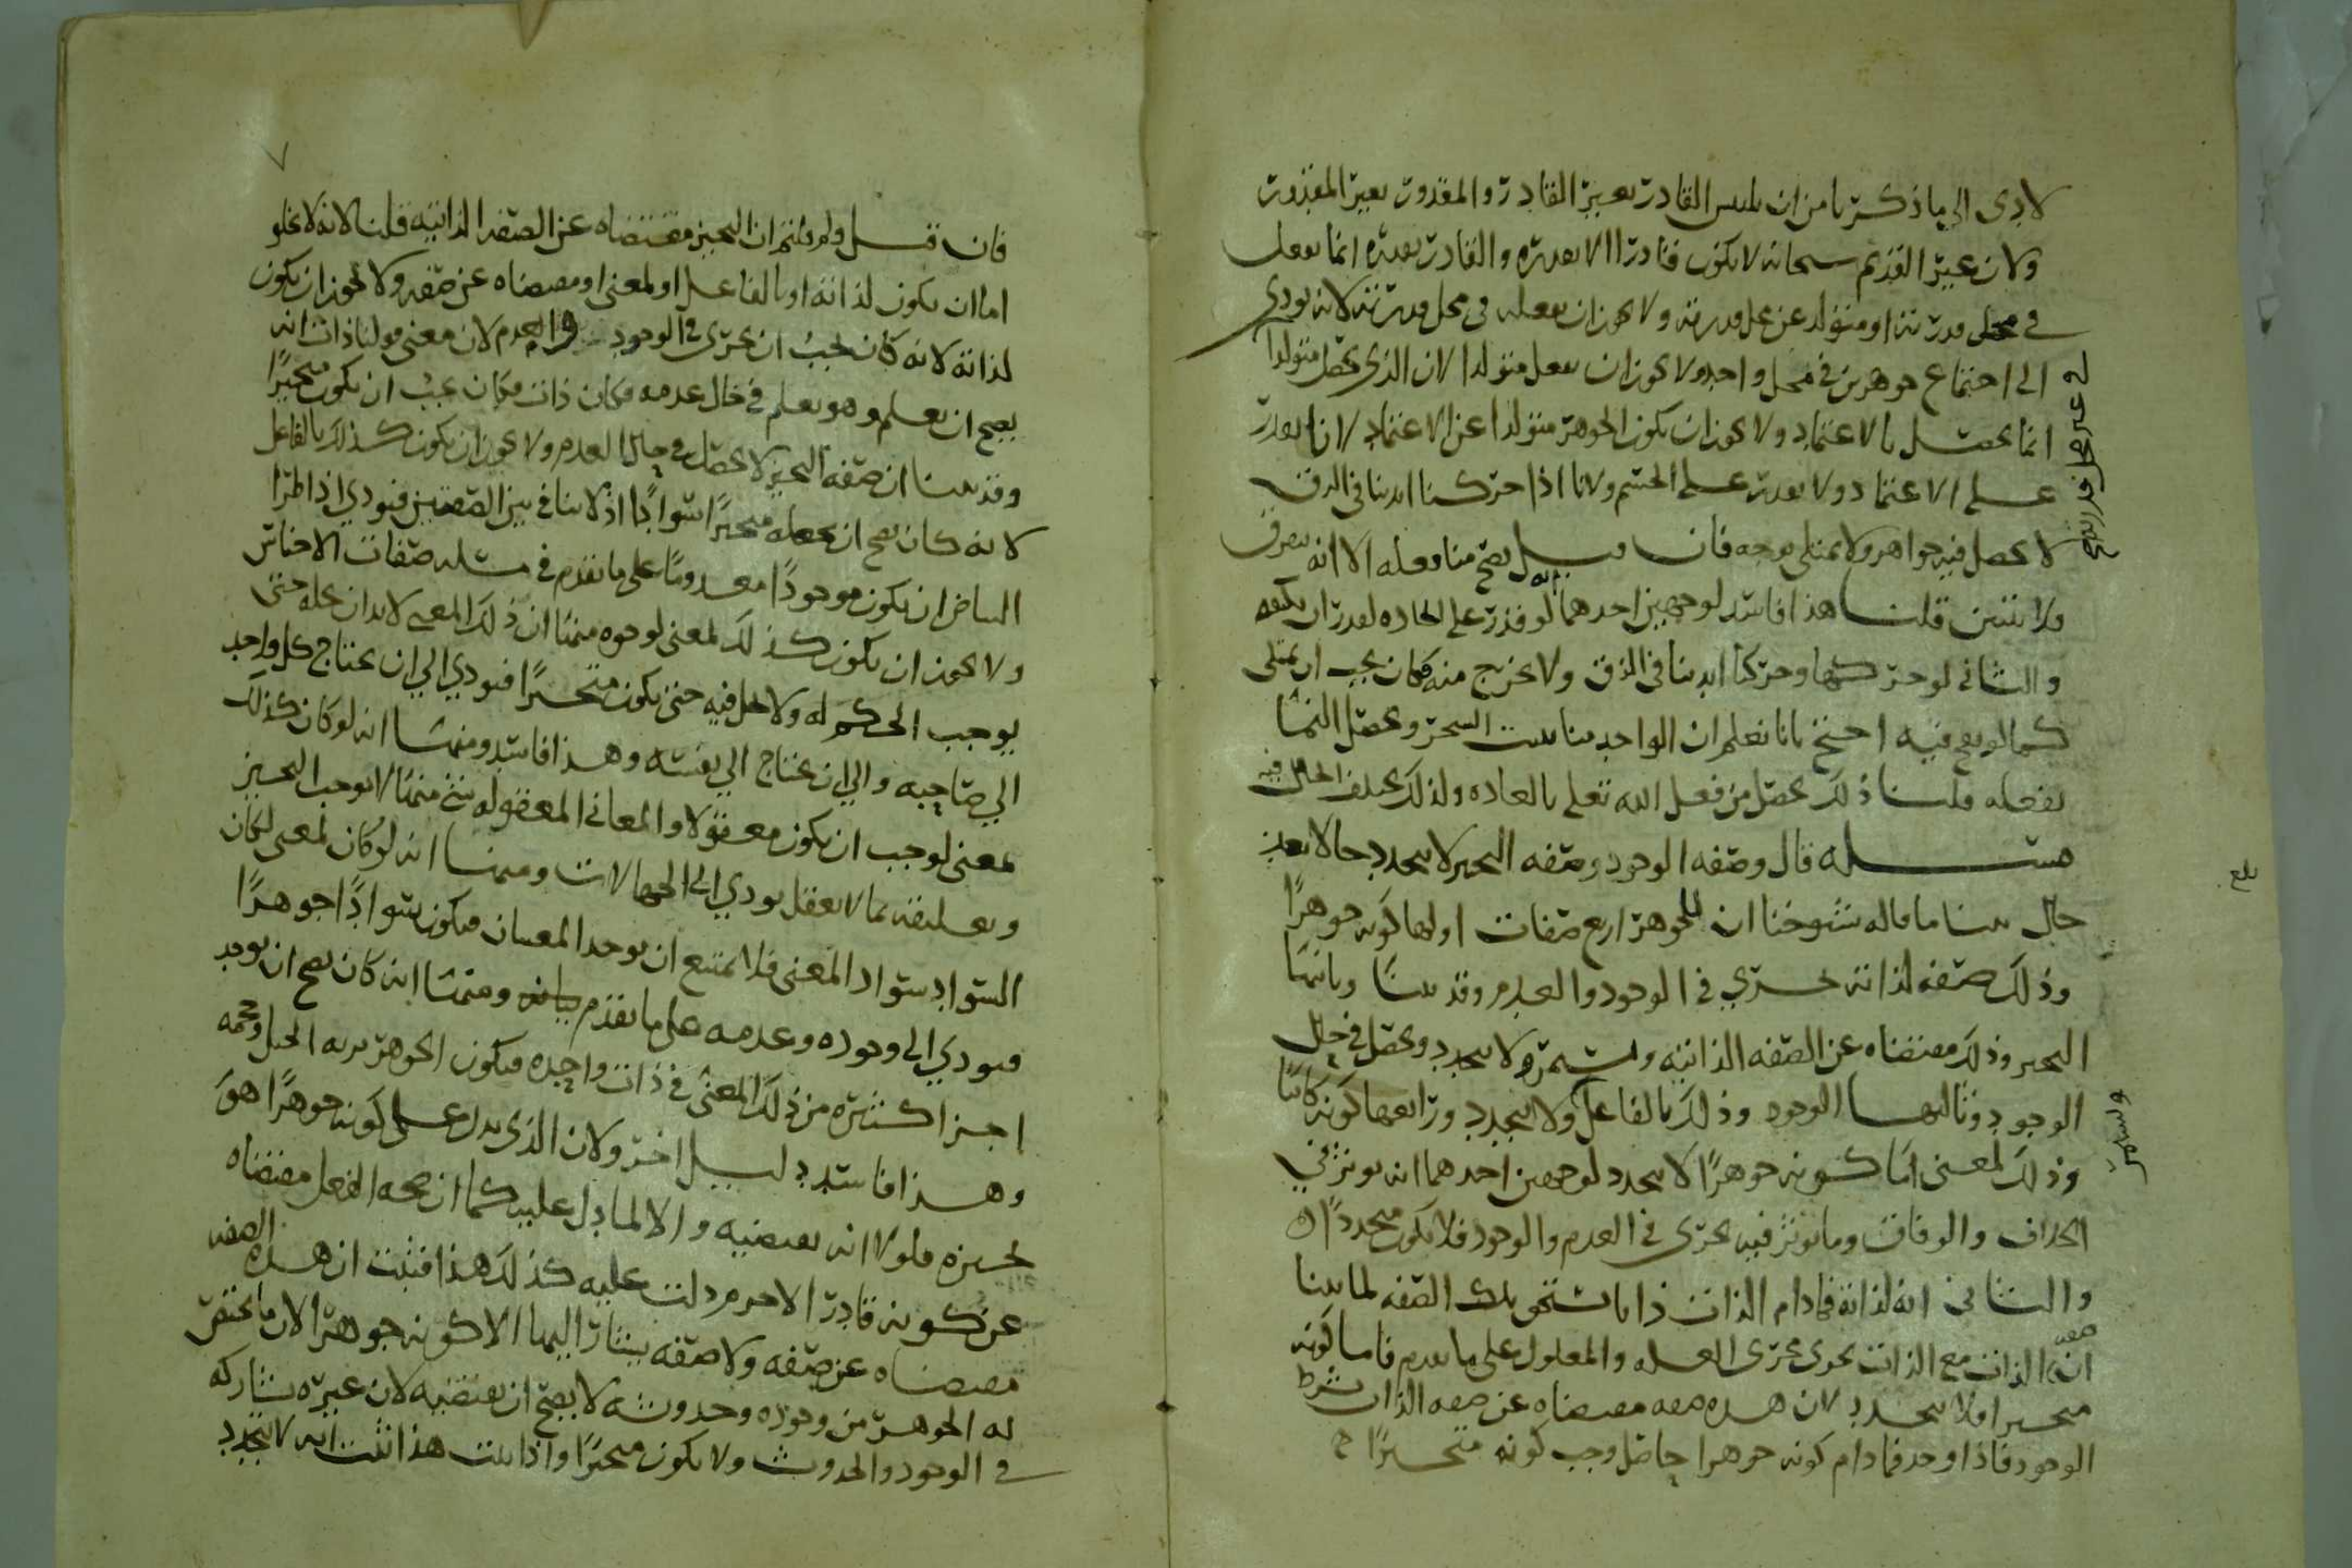 لادى الى ما ذكرنا من ان يلتبس القادر بغير القادر والمقدور بغير المقدور
ولان غير القديم سبحانه لا يكون قادرا الا بقدره والقادر بقدره انما يفعل
في محل قدرته او متولد عن محل قدرته ولا يجوز ان يفعله في محل قدرته لانه يودي
الى اجتماع جوهرين في محل واحد ولا يجوز ان يفعل متولدا لان الذي يحصل متولدا
في غير محل قدرته
انما يحصل بالاعتماد ولا يجوز ان يكون الجوهر متولدا عن الاعتماد لانا نقدر
على الاعتماد ولا نقدر على الجسم ولانا اذا حركنا ايدينا في الزق
لا يحصل فيه جواهر ولا يمتلى بوجه فان قيل يصح منا فعله الا انه يتفرق
ولا يتبين قلنا هذا فاسد لوجهين احدهما انه لو قدر على ايجاده لقدر ان يكثفه
والثاني لو حركها وحركنا ايدينا في الزق ولا يخرج منه فكان يجب ان يمتلى
كما لو نفخ فيه احتج بانا نعلم ان الواحد منا يبت السحر ويحصل النما
بفعله قلنا ذلك يحصل من فعل الله تعلى بالعاده ولذلك يختلف الحال فيه
مسله قال وصفه الوجود وصفه التحيز لا يتجدد حالا بعد
بلغ
حال بينا ما قاله شيوخنا ان للجوهر اربع صفات اولها كونه جوهرًا
وذلك صفه لذاته تجري في الوجود والعدم وقد بينا وثانيها
التحيز وذلك مقتضاه عن الصفه الذاتيه ولا يتجدد ويحصل في حال
الوجود وثالثها الوجود وذلك بالفاعل ولا يتجدد ورابعها كونه كائنا
وذلك لمعنى اما كونه جوهرًا لا يتجدد لوجهين احدهما انه يوثر في
الخلاف والوفاق وما يوثر فيه يجري في العدم والوجود فلا يكون متجددًا
والثاني انه لذاته فما دام الذات ذاتا يستحق تلك الصفه لما بينا
ان صفه الذات مع الذات تجري مجرى العله والمعلول على ما تقدم فاما كونه
متحيزا فلا يتجدد لان هذه صفه مقتضاه عن صفه الذات بشرط
الوجود فاذا وجد فما دام كونه جوهرا حاصل وجب كونه متحيزًا
٧
فان قيل ولم قلتم ان التحيز مقتضاه عن الصفه الذاتيه قلنا لانه لا يخلو
اما ان يكون لذاته او بالفاعل او لمعنى او مقتضاه عن صفه ولا يجوز ان يكون
لذاته لانه كان يجب ان يجري في الوجود والعدم لان معنى قولنا ذات انه
يصح ان يعلم وهو يعلم في حال عدمه فكان ذات فكان يجب ان يكون متحيزًا
وقد بينا ان صفه التحيز لا يحصل في حال العدم ولا يجوز ان يكون كذلك بالفاعل
لانه كان يصح ان يجعله متحيزًا سوادًا اذ لا تنافي بين الصفتين فيودي اذا طرا
البياض ان يكون موجودًا معدومًا على ما تقدم في مسله صفات الاجناس
ولا يجوز ان يكون كذلك لمعنى لوجوه منها ان ذلك المعنى لا بد ان يحله حتى
يوجب الحكم له ولا يحل فيه حتى يكون متحيزًا فيودي الى ان يحتاج كل واحد
الى صاحبه والى ان يحتاج الى نفسه وهذا فاسد ومنها انه لو كان كذلك
لمعنى لوجب ان يكون معقولا والمعاني المعقوله شي منها لا يوجب التحيز
وتعليقه بما لا يعقل يودي الى الجهالات ومنها انه لو كان لمعنى لكان
السواد سواد المعنى فلا يمتنع ان يوجد المعنيان فيكون سوادًا جوهرًا
فيودي الى وجوده وعدمه على ما تقدم بيانه ومنها انه كان يصح ان يوجد
اجزا كثيره من ذلك المعنى في ذات واحده فيكون الجوهر الجبل وحجمه
وهذا فاسد دليل اخر ولان الذي يدل على كونه جوهرًا هو
تحيزه فلولا انه يقتضيه والا لما دل عليه كما ان صحه الفعل مقتضاه
عن كونه قادرا لا جرم دلت عليه كذلك هذا فثبت ان هذه الصفه
مقتضاه عن صفه ولا صفه يشار اليها الا كونه جوهرا لان ما يختص
له الجوهر من وجوده وحدوثه لا يصح ان يقتضيه لان غيره شاركه
في الوجود والحدوث ولا يكون متحيزًا واذا ثبت هذا ثبت انه لا يتجدد